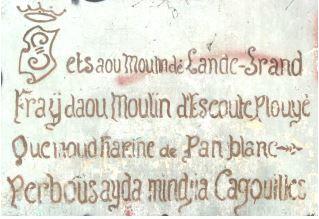 Sets aou Moulin de Lande-Grand
Fraÿ daou Moulin d'Escoute Plouye
Que moud harine de Pan blanc
Per bous ayda mindja Cagouilles